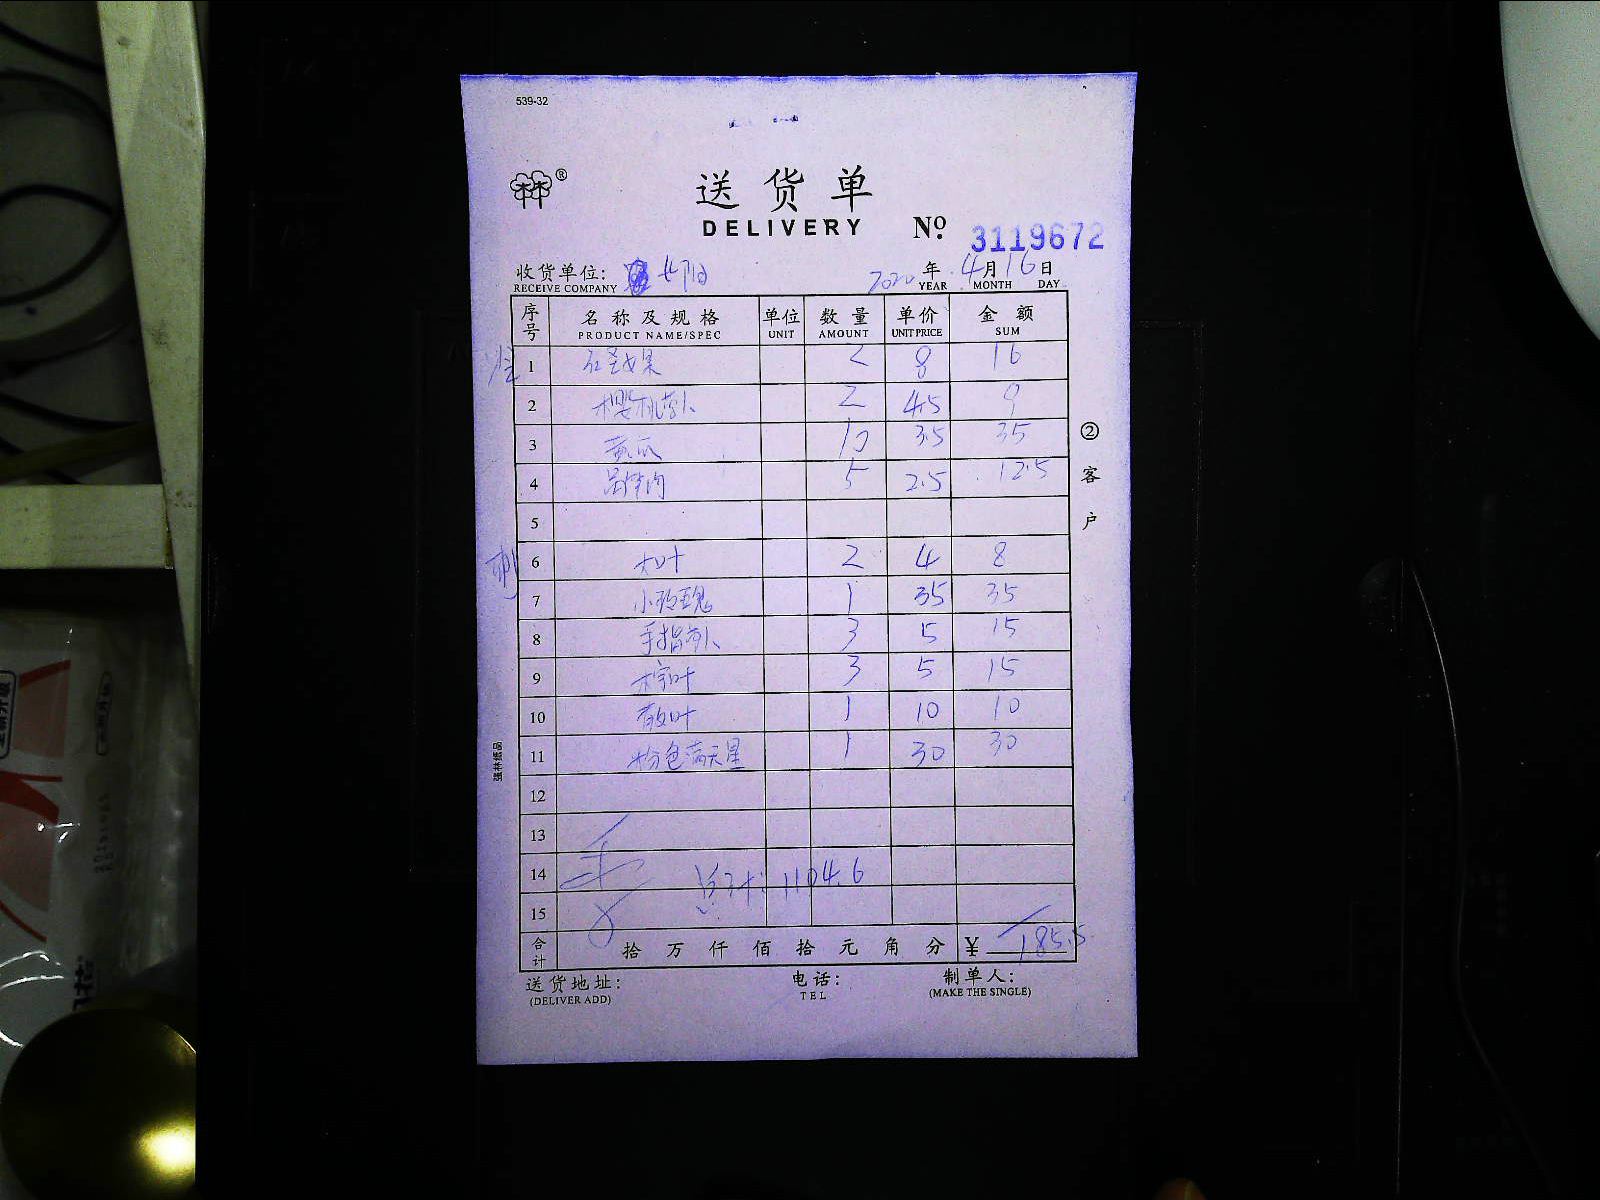 539-32
送货单
DELIVERY Nº 3119672
收货单位: 2020年4月16日
RECEIVE COMPANY YEAR MONTH DAY
序号 名称及规格 单位 数量 单价 金额
PRODUCT NAME/SPEC UNIT AMOUNT UNIT PRICE SUM
1 红圣女果 2 8 16
2 樱桃萝卜 2 4.5 9
3 黄瓜 10 3.5 35
4 2.5 12.5
5
刺 6 2 4 8
7 小玫瑰 1 35 35
8 手指萝卜 3 5 15
9 棕叶 3 5 15
10 散叶 1 10 10
11 粉色满天星 1 30 30
12
13
14 总计: 1104.6
15
合计 拾万仟佰拾元角分 ¥ 185.5
送货地址: 电话: 制单人:
(DELIVER ADD) TEL (MAKE THE SINGLE)
②客户
强林纸品